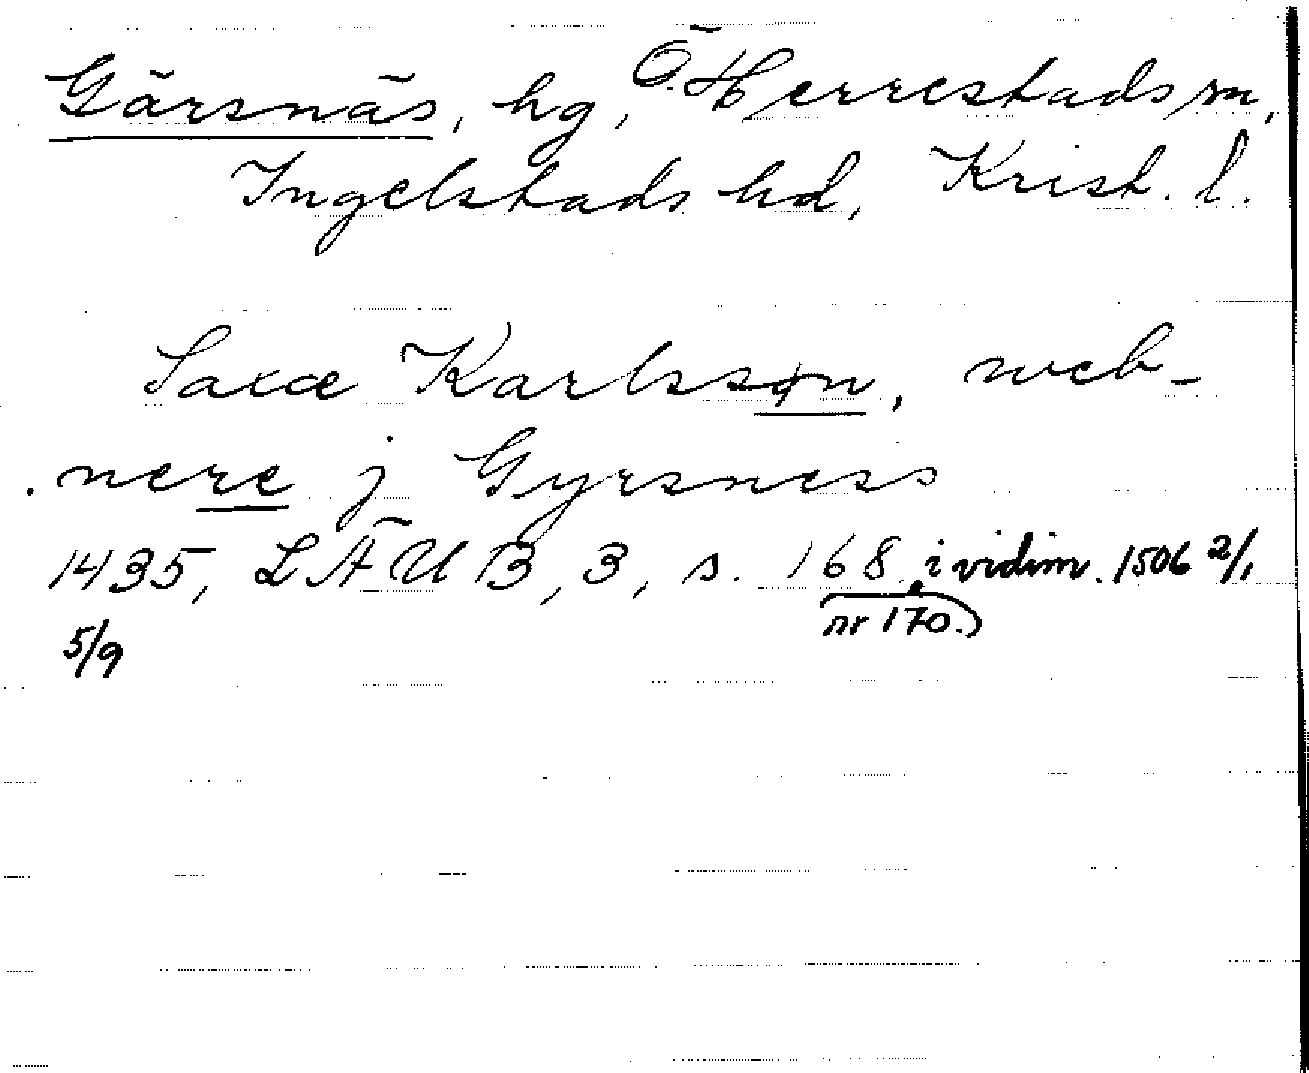 Gärsnäs, hg, Ö. Herrestads sn,
Ingelstads hd, Krist. l.
Saxæ Karlssøn, web-
nere j Gyrsness
1435, LÄUB, 3, s. 168 i vidim. 1506 2/1
nr 170.
5/9